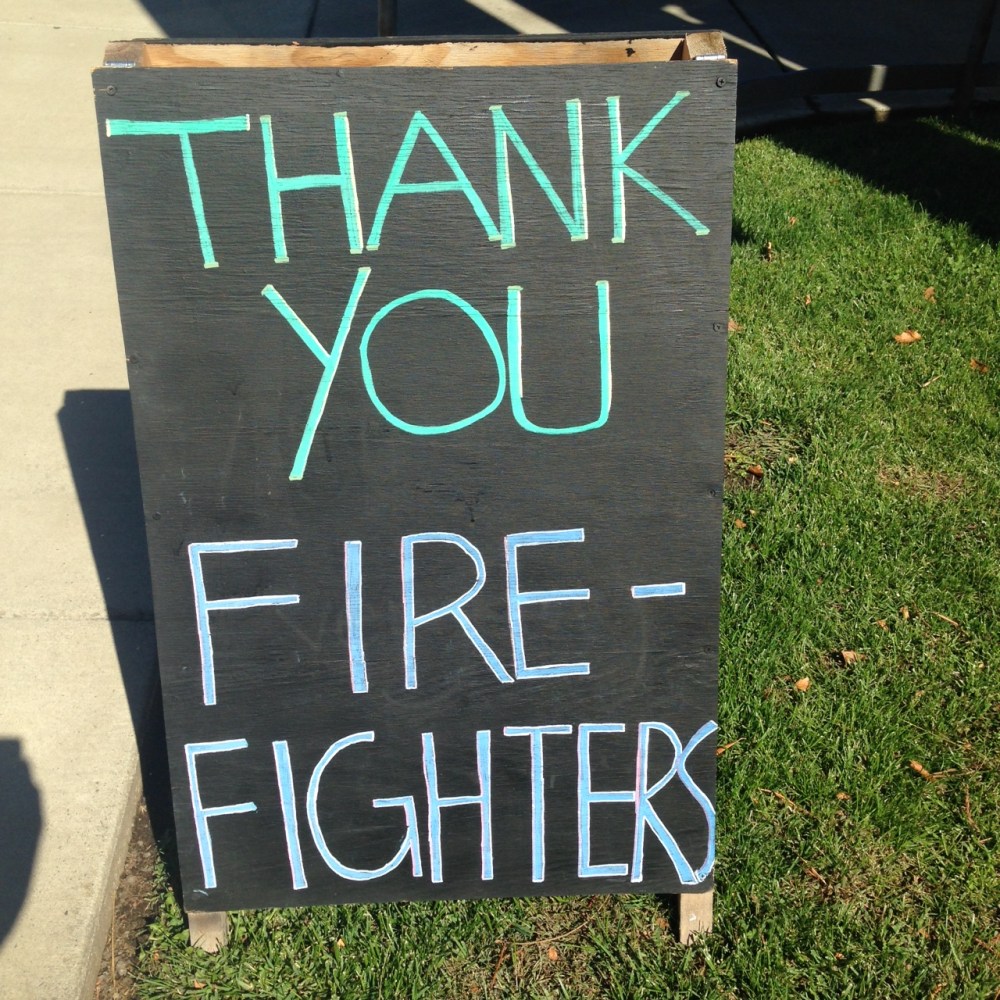 THANK
YOU
FIRE-
FIGHTERS